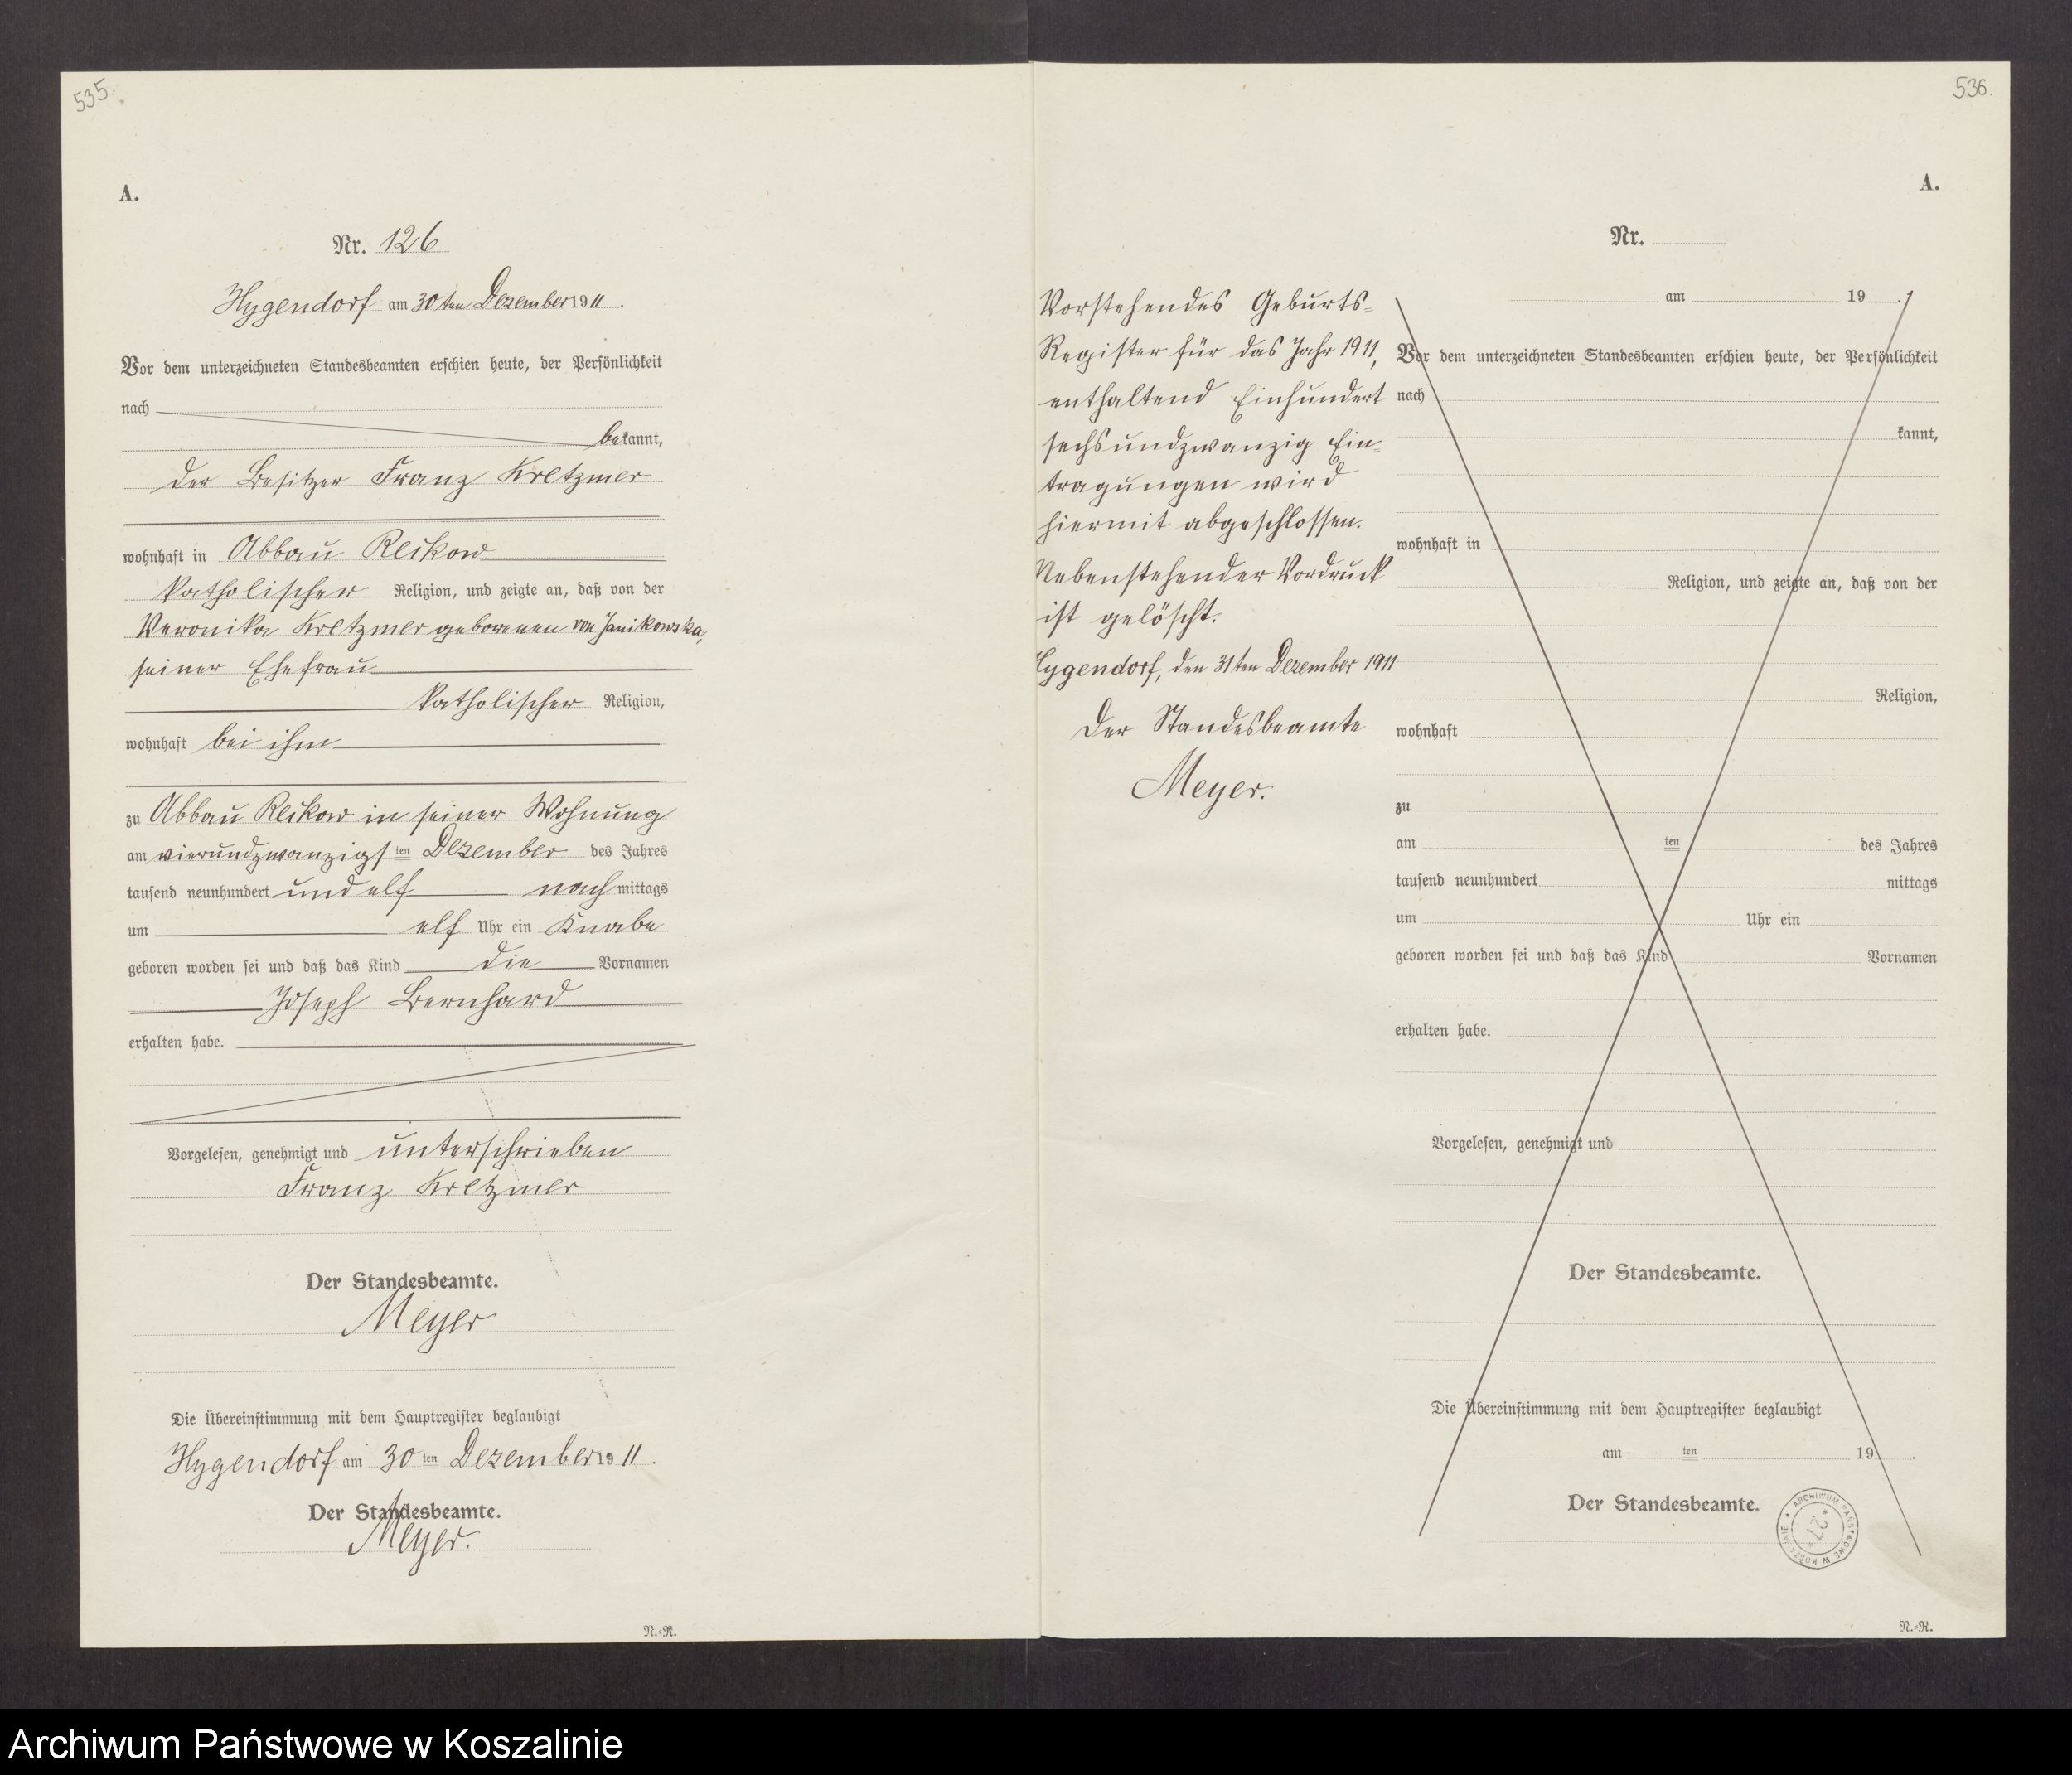 535.
A.
Nr. 126
Hygendorf am 30ten Dezember 1911.
Vor dem unterzeichneten Standesbeamten erschien heute, der Persönlichkeit
nach
bekannt,
der Besitzer Franz Kretzmer
wohnhaft in Abbau Reckow
katholischer Religion, und zeigte an, daß von der
Veronika Kretzmer geborenen von Janikowska,
seiner Ehefrau
katholischer Religion,
wohnhaft bei ihm
zu Abbau Reckow in seiner Wohnung
am vierundzwanzigsten Dezember des Jahres
tausend neunhundert und elf nachmittags
um elf Uhr ein Knabe
geboren worden sei und daß das Kind die Vornamen
Joseph Bernhard
erhalten habe.
Vorgelesen, genehmigt und unterschrieben
Franz Kretzmer
Der Standesbeamte.
Meyer
Die Übereinstimmung mit dem Hauptregister beglaubigt
Hygendorf am 30ten Dezember 1911.
Der Standesbeamte.
Meyer.
N.=R.
536.
A.
Vorstehendes Geburts=
Register für das Jahr 1911,
enthaltend Einhundert
sechsundzwanzig Ein=
tragungen wird
hiermit abgeschlossen.
Nebenstehender Vordruck
ist gelöscht.
Hygendorf, den 31ten Dezember 1911
Der Standesbeamte
Meyer.
Nr.
am 19 .
Vor dem unterzeichneten Standesbeamten erschien heute, der Persönlichkeit
nach
kannt,
wohnhaft in
Religion, und zeigte an, daß von der
Religion,
wohnhaft
zu
am ten des Jahres
tausend neunhundert mittags
um Uhr ein
geboren worden sei und daß das Kind Vornamen
erhalten habe.
Vorgelesen, genehmigt und
Der Standesbeamte.
Die Übereinstimmung mit dem Hauptregister beglaubigt
am ten 19 .
Der Standesbeamte.
ARCHIWUM PAŃSTWOWE W KOSZALINIE
* 27 *
N.=R.
Archiwum Państwowe w Koszalinie